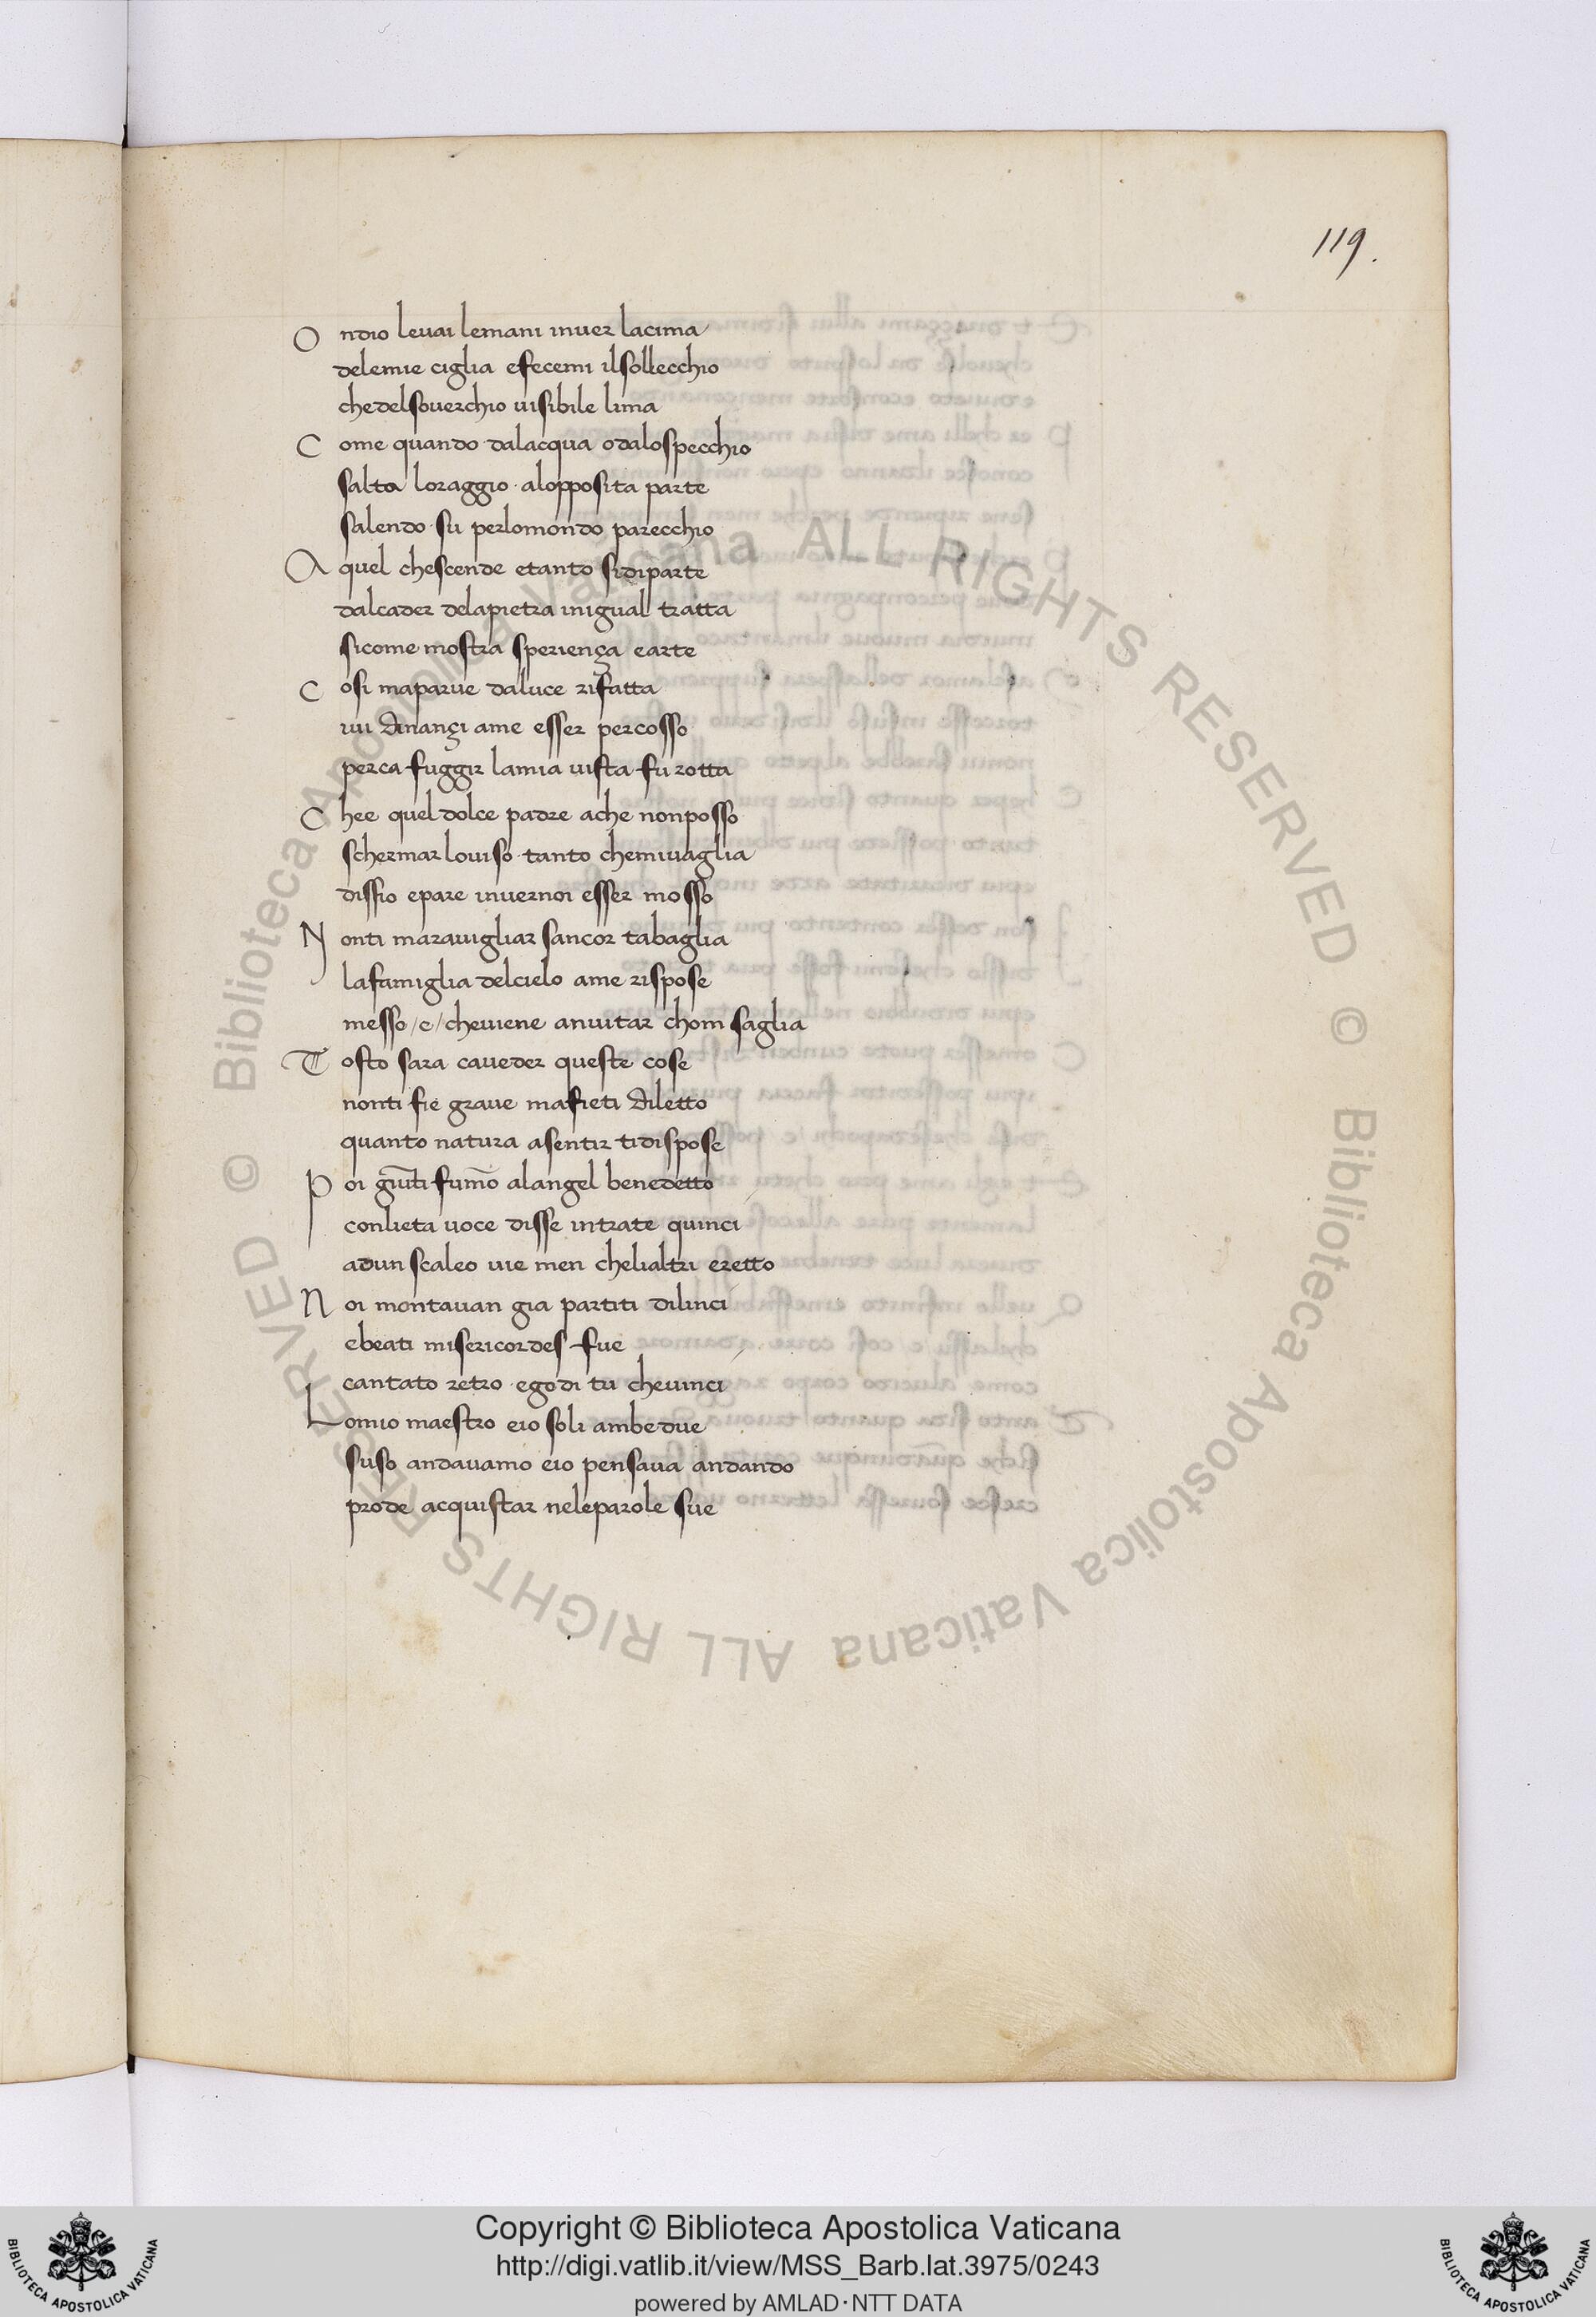 119.
O ndio levai lemani inver lacima
delemie ciglia efecemi ilsollecchio
chedelsoverchio visibile lima
C ome quando dalacqua odalospecchio
salta loraggio · alopposita parte
salendo · su perlomondo parecchio
A quel chescende etanto sidiparte
dalcader delapietra inigual tratta
sicome mostra speriença earte
C osi maparve daluce rifatta
ivi dinançi ame esser percosso
perca fuggir lamia vista fu rotta
C hee quel dolce padre ache nonposso
schermar loviso · tanto chemivaglia
dissio epare invernoi esser mosso
N onti maravigliar sancor tabaglia
lafamiglia delcielo ame rispose
messo /e/ cheviene anvitar chom saglia
T osto sara caveder queste cose
nonti fie grave mafieti diletto
quanto natura asentir tidispose
P oi giũti fumo alangel benedetto
conlieta voce disse intrate quinci
adun scaleo vie men chelialtri eretto
N oi montavan gia partiti dilinci
ebeati misericordes fue
cantato retro · egodi tu chevinci
L omio maestro eio soli ambedue
suso andavamo eio pensava andando
prode acquistar neleparole sue
© Biblioteca Apostolica Vaticana ALL RIGHTS RESERVED © Biblioteca Apostolica Vaticana ALL RIGHTS RESERVED
BIBLIOTECA APOSTOLICA VATICANA
Copyright © Biblioteca Apostolica Vaticana
http://digi.vatlib.it/view/MSS_Barb.lat.3975/0243
powered by AMLAD·NTT DATA
BIBLIOTECA APOSTOLICA VATICANA